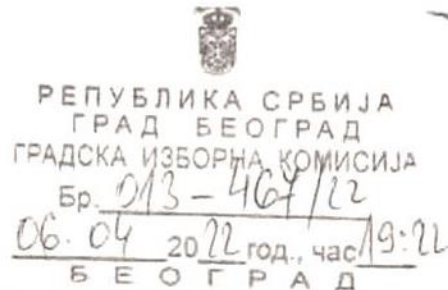 РЕПУБЛИКА СРБИЈА
ГРАД БЕОГРАД
ГРАДСКА ИЗБОРНА КОМИСИЈА
Бр. 013-467/22
06. 04 2022 год., час 19:22
БЕОГРАД